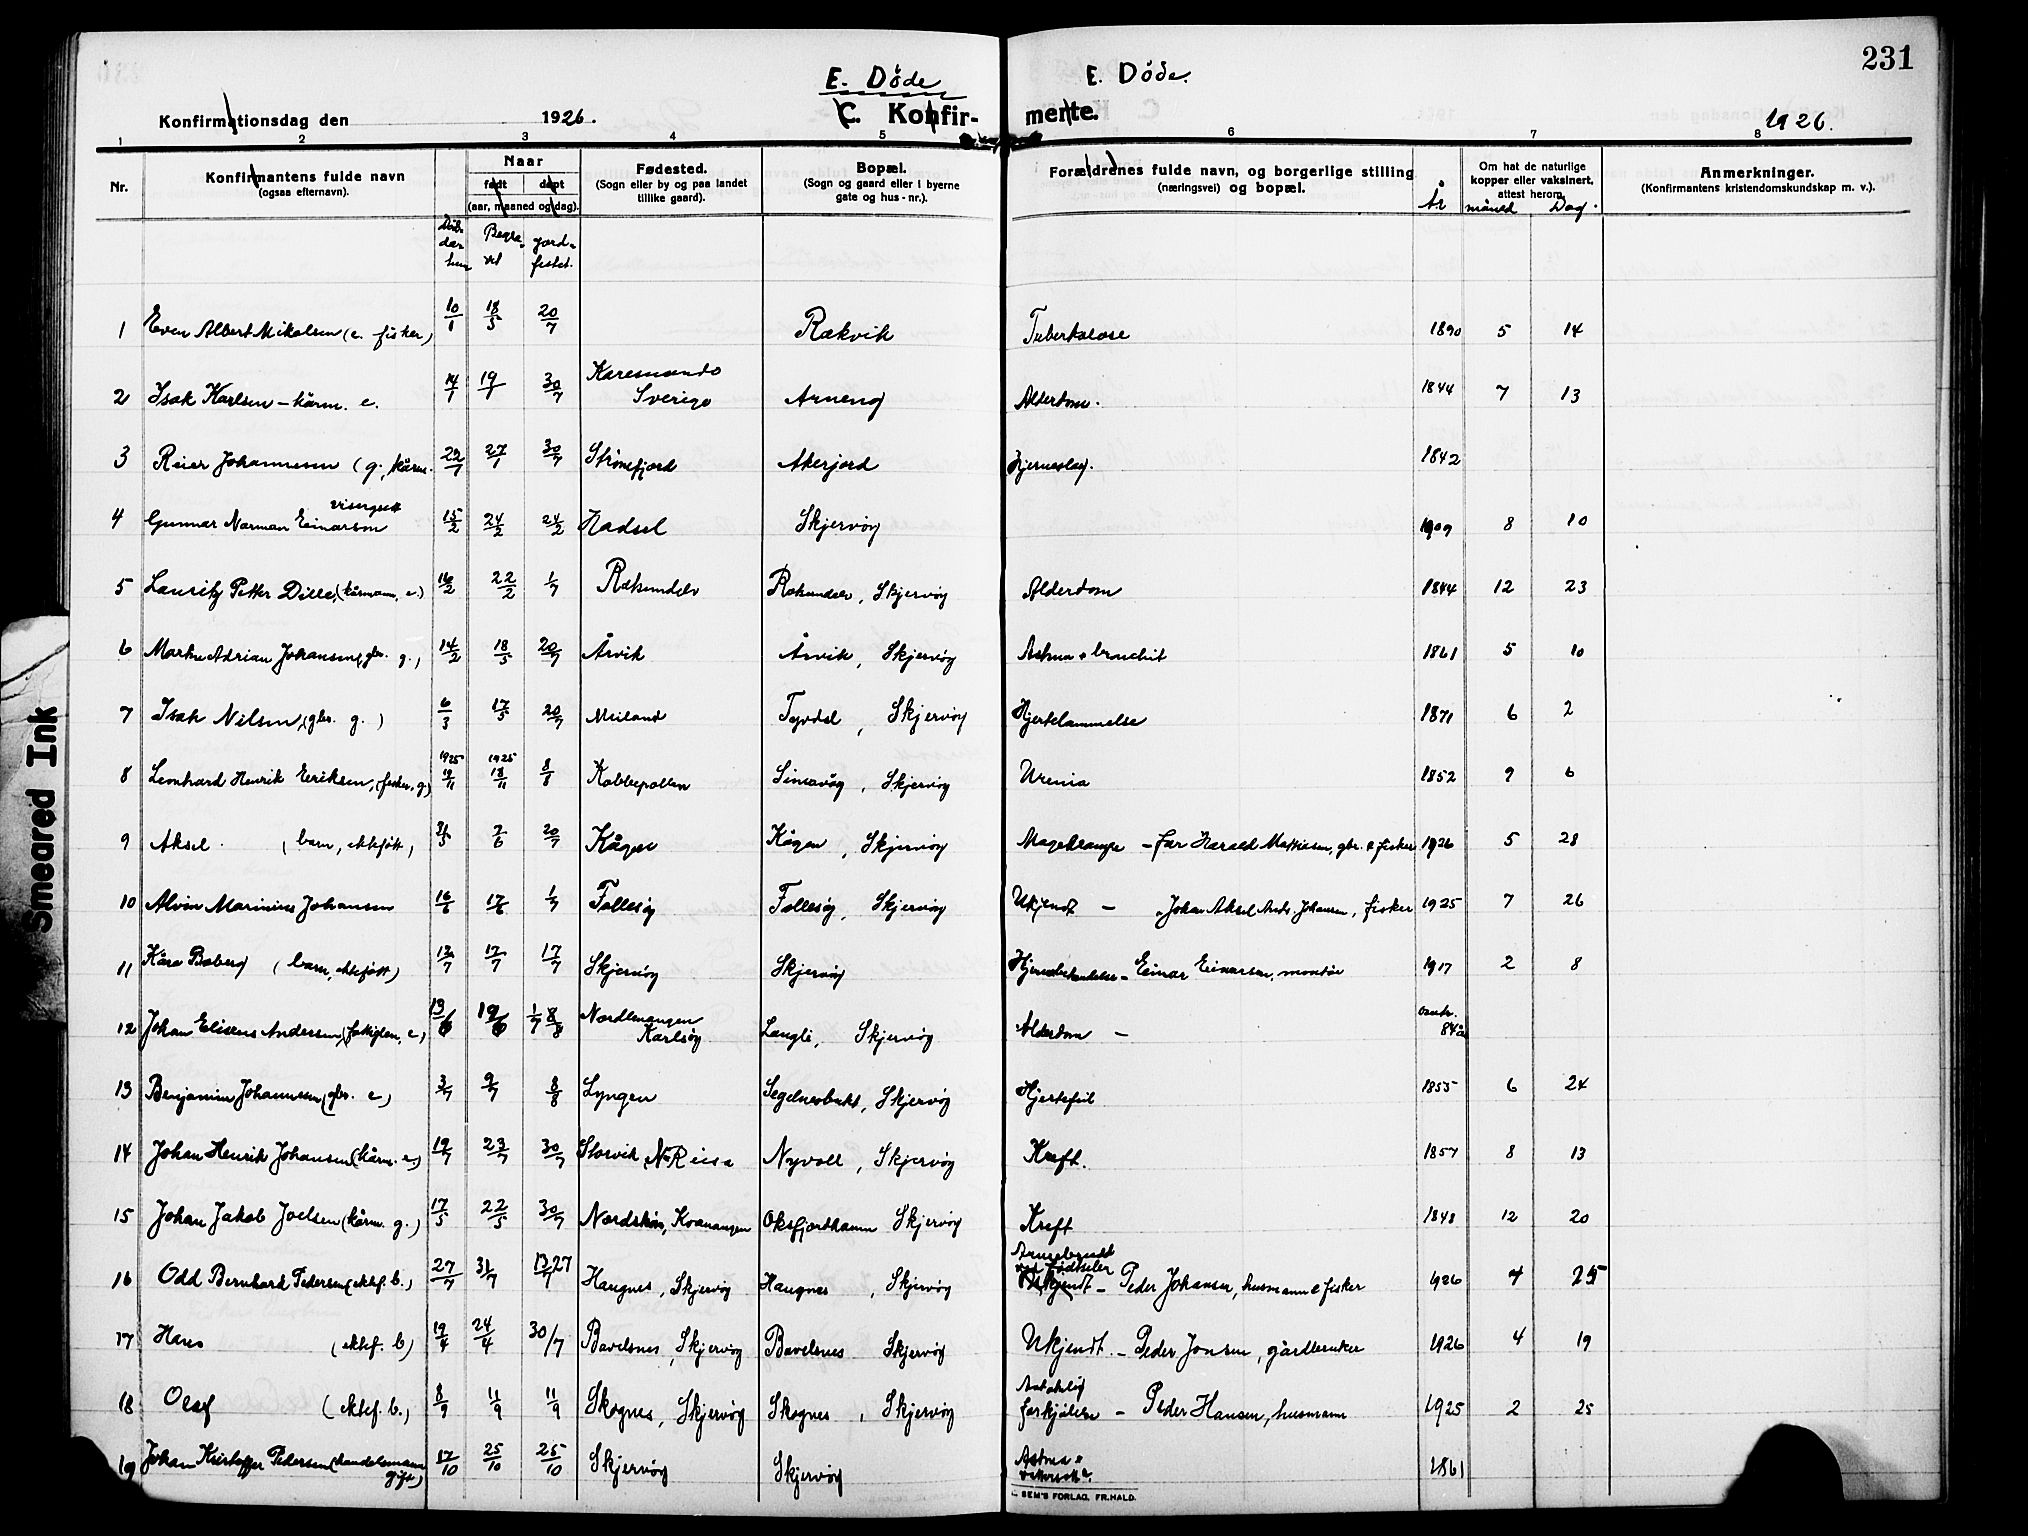 231
E. Döde
E. Döde.
Konfirmationsdag den 1926.
C. Konfir-
mente.
1926.
1 2 3 4 5 6 7 8
Nr.
Konfirmantens fulde navn
(ogsaa efternavn).
Naar
født døpt
(aar, maaned og dag).
Fødested.
(Sogn eller by og paa landet
tillike gaard).
Bopæl.
(Sogn og gaard eller i byerne
gate og hus-nr.).
Forældrenes fulde navn, og borgerlige stilling
(næringsvei) og bopæl.
År
Om hat de naturlige
kopper eller vaksinert,
attest herom.
måned Dag.
Anmerkninger.
(Konfirmantens kristendomskundskap m. v.).
jord-
festet.
1 Even Albert Mikalsen (e. fisker) 10/1 18/5 20/7 Rækvik Tuberkulose 1890 5 14
2 Isak Karlsen - kårm. e. 14/1 19/1 30/7 Karesuando Sverige Arneng Alderdom. 1844 7 13
3 Reier Johannesen (g. kårm. 22/1 27/1 30/7 Akerjord Hjerneslag. 1842
4 Gunnar Norman Einarsen 15/2 24/2 24/2 Hadsel Skjervöy 1909 8 10
5 Lauritz Petter Dille, (kårmann, e.) 16/2 22/2 1/7 Rakundelv Skjervöy Alderdom 1844 12 23
6 Adrian Johansen, gbr. g.) 14/2 18/5 20/7 Årvik Årvik, Skjervöy Astma + bronchit 1861 5 10
7 Isak Nilsen, (gbr. g.) 6/3 17/5 20/7 Meiland Skjervöy Hjertelammelse 1871 6 2
8 Leonhard Henrik Eriksen, (fisker, g) 1925 1925 18/11 8/8 Kobbepollen Skjervöy Uremia 1852 9 6
9 Aksel (barn, ektefött) 31/5 2/6 20/7 Kågen Kågen, Skjervöy Magekrampe - far Harald Mathisen, gbr. & fisker 1926 5 28
10 Alvin Marinius Johansen 16/6 17/6 1/7 Follesöy Follesöy, Skjervöy Ukjendt - Johan Aksel Johansen, fisker 1925 7 26
11 Kåre Boberg (barn, ektefött) 17/7 17/7 Skjervöy Skjervöy - Einar Einarsen, montör 1917 2 8
12 Johan Andersen, e.) 13/6 19/6 1/7 8/8 Karlsöy Skjervöy Alderdom - 84 år
13 Benjamin Johannesen (gbr. e) 3/7 9/7 8/8 Lyngen Skjervöy Hjertefeil 1855 6 24
14 Johan Henrik Johansen (kårm. e.) 19/7 23/7 30/7 Storvik, N. Reisa Nyvoll, Skjervöy Kreft. 1857 8 13
15 Johan Jakob Joelsen (kårm. g.) 17/5 22/5 30/7 Kvænangen Oksfjordhamn Skjervöy Kreft 1848 12 20
16 Odd Bernhard Pedersen (ektef. b.) 27/7 31/7 13/7 27 Haugnes, Skjervöy Haugnes, Skjervöy ved födselen Ukjendt - Peder Johansen, husmann & fisker 1926 4 25
17 Hans (ektef. b) 19/4 24/4 30/7 Skjervöy Skjervöy Ukjendt. - Peder Jonsen, gårdbruker 1926 4 19
18 Olaf (ektef. b.) 8/9 11/9 11/9 Skognes, Skjervöy Skognes, Skjervöy forkjölelse - Peder Hansen, husmann 1925 2 25
19 Johan Kristoffer Pedersen (handelsmann gift) 17/10 25/10 25/10 Skjervöy Skjervöy 1861
SEM'S FORLAG, FR.HALD.
Smeared Ink